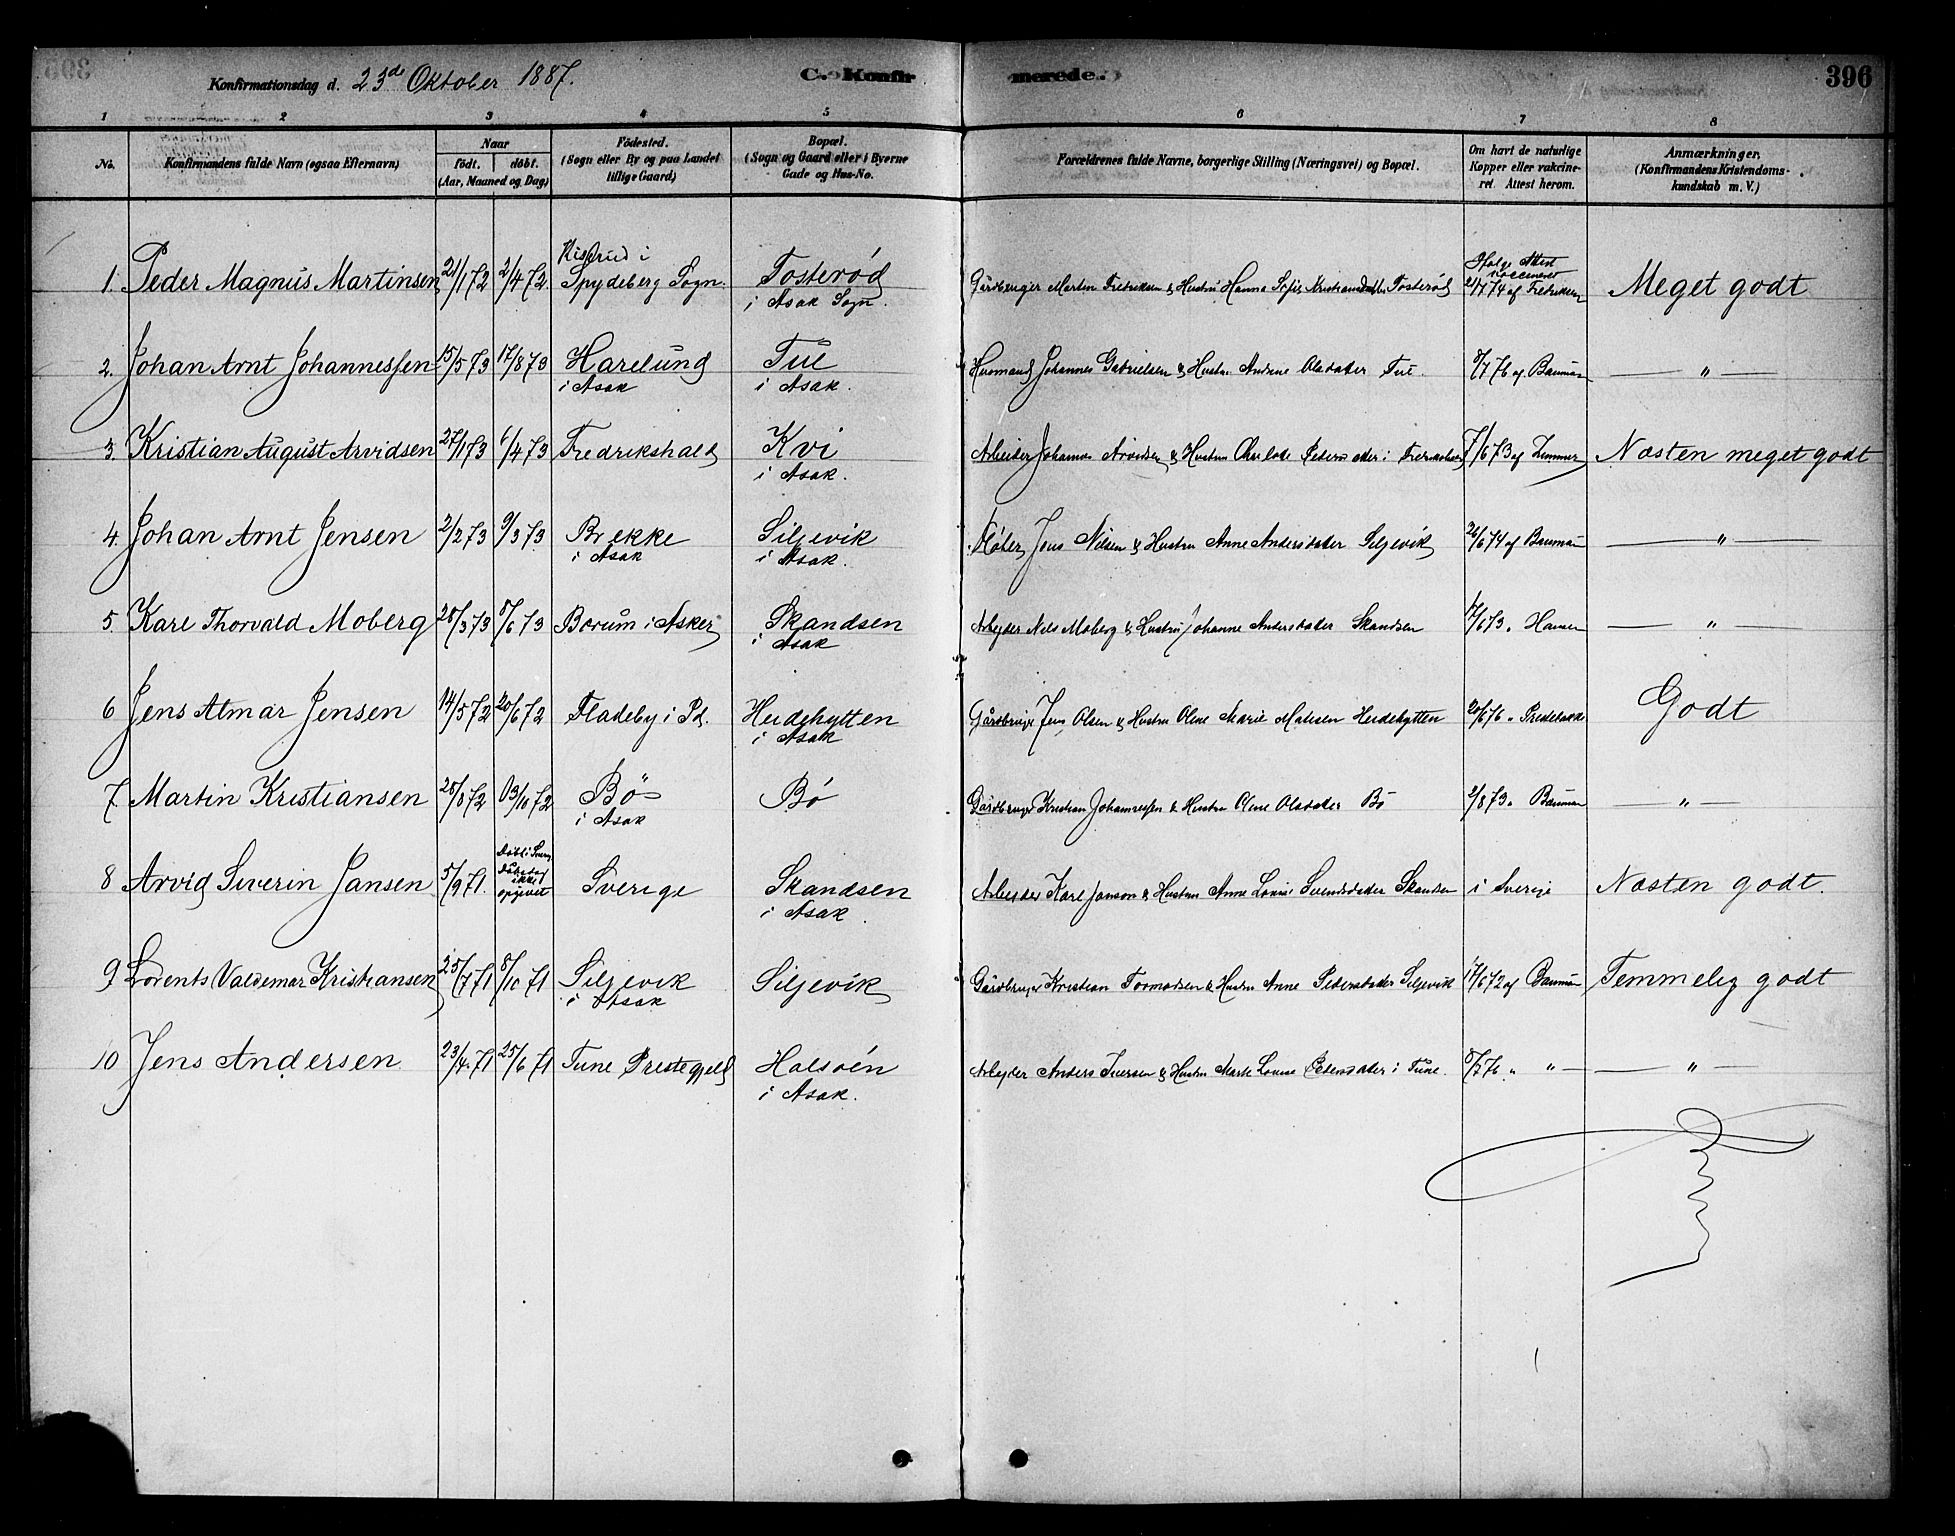 Konfirmationsdag d. 23de Oktober 1887.
C. Konfirmerede.
396
1 2 3 4 5 6 7 8
No. Konfirmandens fulde Navn (ogsaa Efternavn) Naar født. døbt. (Aar, Maaned og Dag) Fødested. (Sogn eller By og paa Landet tillige Gaard) Bopæl. (Sogn og Gaard eller i Byerne Gade og Hus-No. Forældrenes fulde Navne, borgerlige Stilling (Næringsvei) og Bopæl. Om havt de naturlige Kopper eller vakcineret. Attest herom. Anmærkninger. (Konfirmandens Kristendomskundskab m. V.)
1. Peder Magnus Martinsen 21/1 72 2/4 72. i Spydeberg Sogn. Tosterød i Asak Sogn. Gårdbruger Martin Fredriksen & Hustru Hanna Sofie Tosterød Ifølge Attest vaccineret 74 af Fredriksen Meget godt
2. Johan Arnt Johannessen 15/5 73 17/8 73 Harelund i Asak Tue i Asak. Husmand Johannes Gabrielsen & Hustru Andrine Olsdatter Tue. 8/7 76 af Bauman — " —
3. Kristian August Arvidsen 27/1 73 6/4 73 Fredrikshald Kvi i Asak. Arbeider Johannes Arvidsen & Hustru Charlotte Pedersdatter i Fredrikshald 7/6 73 af Zimmer Næsten meget godt
4. Johan Arnt Jensen 2/2 73 9/3 73 Brekke i Asak Siljevik i Asak. Fløter Jens Nilsen & Hustru Anne Andersdatter Siljevik 26/6 74 af Bauman — " —
5. Karl Thorvald Moberg 28/3 73 8/6 73 Borum i Asker Skandsen i Asak Arbejder Nils Moberg & Hustru Johanne Andersdatter Skandsen 17/6 73 " Hansen — " —
6 Jens Almar Jensen 14/5 72 20/6 72 Fladeby i Id. Heidehytten i Asak Gårdbruger Jens Olsen & Hustru Oline Marie Matisen Heidehytten 20/6 76 " Godt
7 Martin Kristiansen 28/8 72 03/10 72 Bø i Asak Bø Gårdbruger Kristian Johannessen & Hustru Oline Olsdatter Bø 2/8 73 " Bauman — " —
8 Arvid Severin Jansen 5/9 71. Døbt i Sverig Dåbsdag ikke opgivet Sverige Skandsen i Asak. Arbejder Karl Janson & Hustru Anne Lovise Svendsdatter Skandsen i Sverige Næsten godt.
9 Lorents Valdemar Kristiansen 25/7 71 8/10 71 Siljevik i Asak Siljevik Gårdbruger Kristian Tormodsen & Hustru Anne Pedersdatter Siljevik 17/6 72 af Bauman Temmelig godt
10 Jens Andersen 23/4 71 25/6 71 Tune Prestegjeld Holsøen i Asak. Arbejder Anders Iversen & Hustru Marte Lovise Pedersdatter i Tune. 8/7 76 " " — — " —